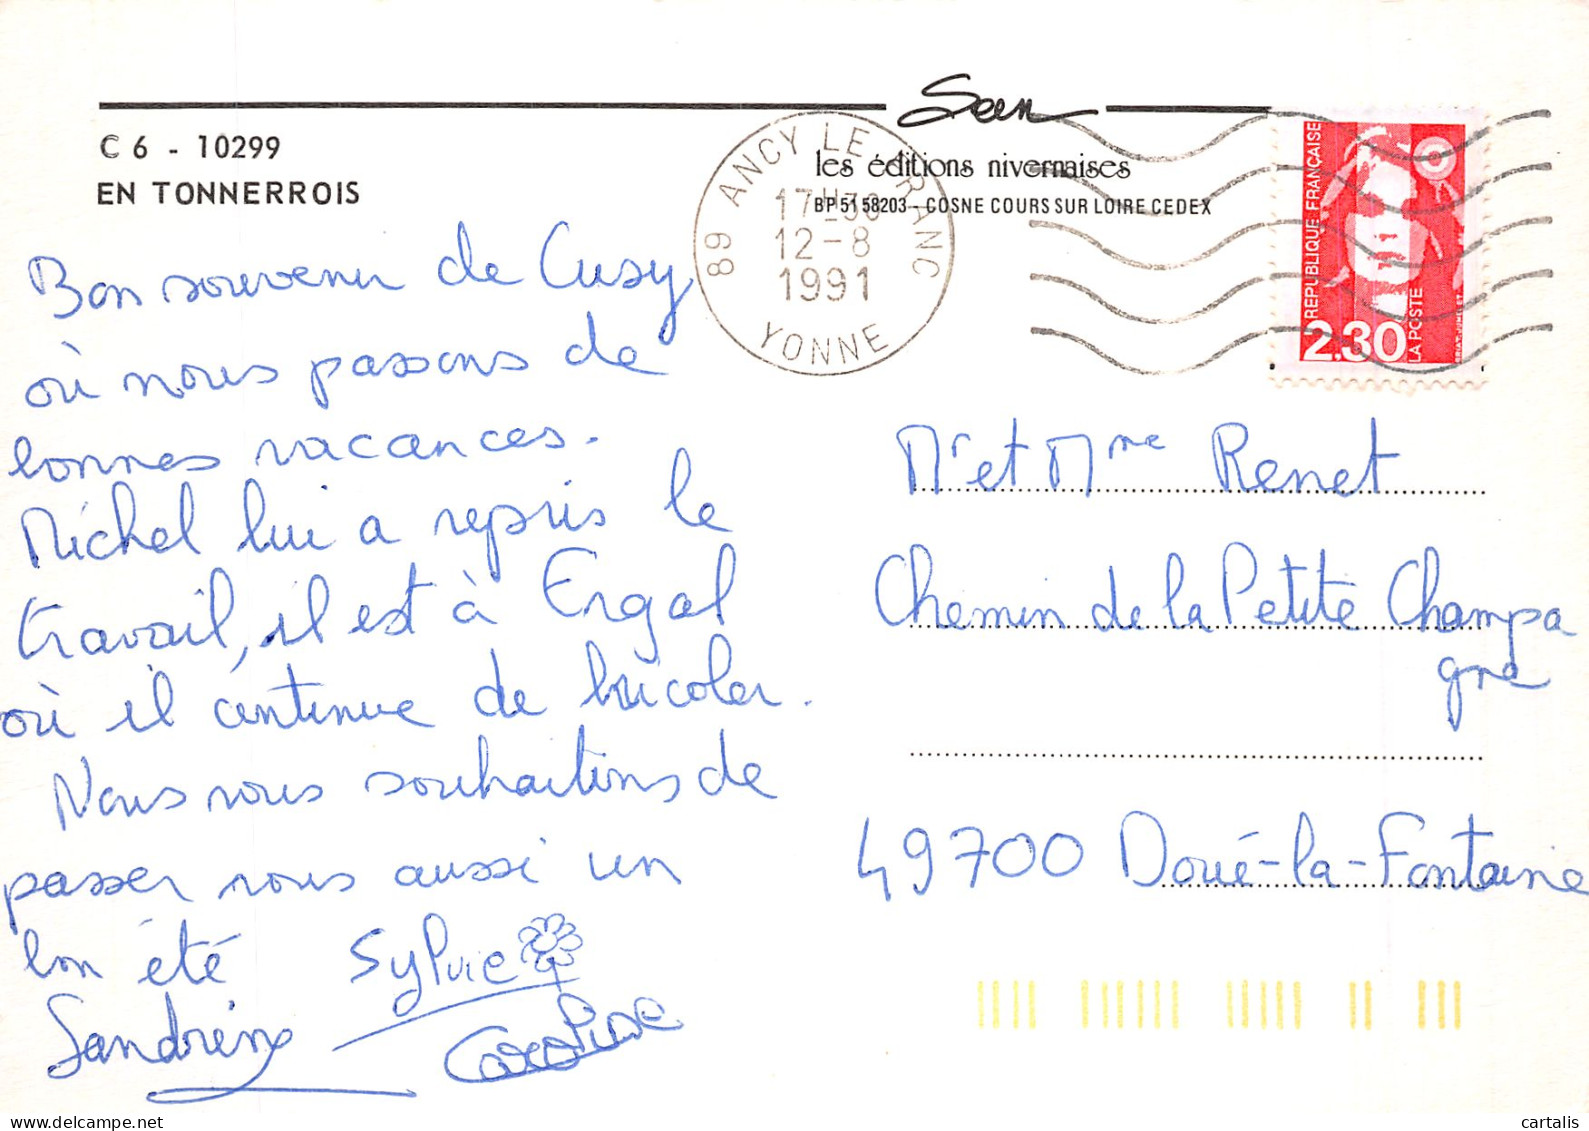 Seen
C 6 - 10299
EN TONNERROIS
les éditions nivernaises
BP 51 58203 - COSNE COURS SUR LOIRE CEDEX
89 ANCY LE FRANC
17H30
12-8
1991
YONNE
RÉPUBLIQUE FRANÇAISE
2,30
LA POSTE
Bon souvenir de Cusy
où nous passons de
bonnes vacances.
Michel lui a repris le
travail, il est à Ergal
où il continue de bricoler.
Nous vous souhaitons de
passer vous aussi un
bon été
Sylvie
Sandrine
Caroline
Mr et Mme Renet
Chemin de la Petite Champa
gne
49700 Doué-la-Fontaine
delcampe.net
cartalis